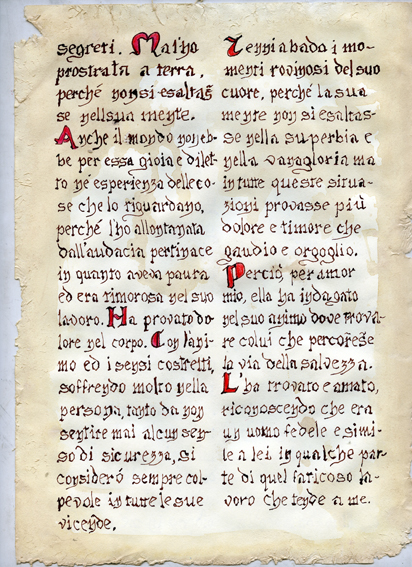 segreti. Ma l'ho
prostrata a terra,
perché non si esaltas
se nella sua mente.
Anche il mondo non eb-
be per essa gioia e dilet-
to né esperienza delle co-
se che lo riguardano,
perché l'ho allontanata
dall'audacia pertinace
in quanto aveva paura
ed era timorosa nel suo
lavoro. Ha provato do
lore nel corpo. Con l'ani-
mo ed i sensi costretti,
soffrendo molto nella
persona, tanto da non
sentire mai alcun sen-
so di sicurezza, si
considerò sempre col-
pevole in tutte le sue
vicende.
Tenni a bada i mo-
menti rovinosi del suo
cuore, perché la sua
mente non si esaltas-
se nella superbia e
nella vanagloria ma
in tutte queste situa-
zioni provasse più
dolore e timore che
gaudio e orgoglio.
Perciò, per amor
mio, ella ha indagato
nel suo animo dove trova-
re colui che percoresse
la via della salvezza.
L'ha trovato e amato,
riconoscendo che era
un uomo fedele e simi-
le a lei in qualche par-
te di quel faticoso la-
voro che tende a me.